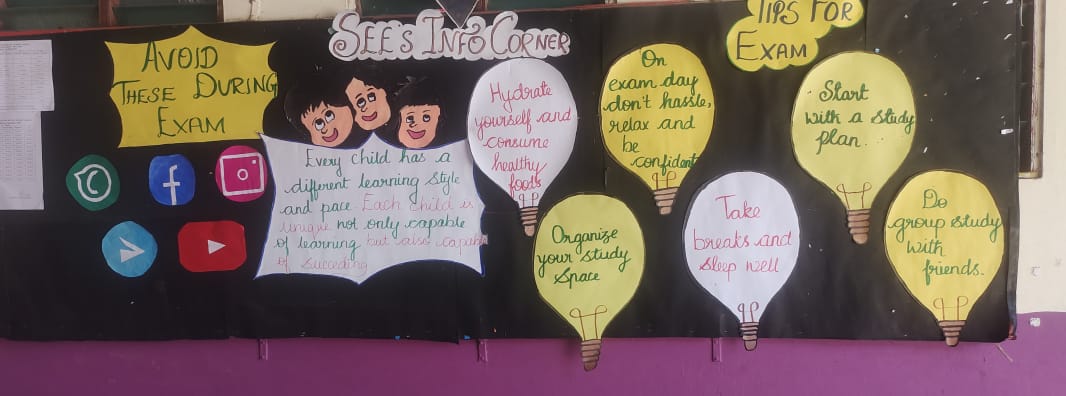 SEE'S INFO CORNER
AVOID
THESE DURING
EXAM
Every child has a
different learning style
and pace Each child is
unique not only capable
of learning but also capable
of succeding
TIPS FOR
EXAM
Hydrate
yourself and
consume
healthy
foods
On
exam day
don't hassle,
relax and
be
confident
Start
with a study
plan.
Organize
your study
space
Take
breaks and
sleep well
Do
group study
with
friends.